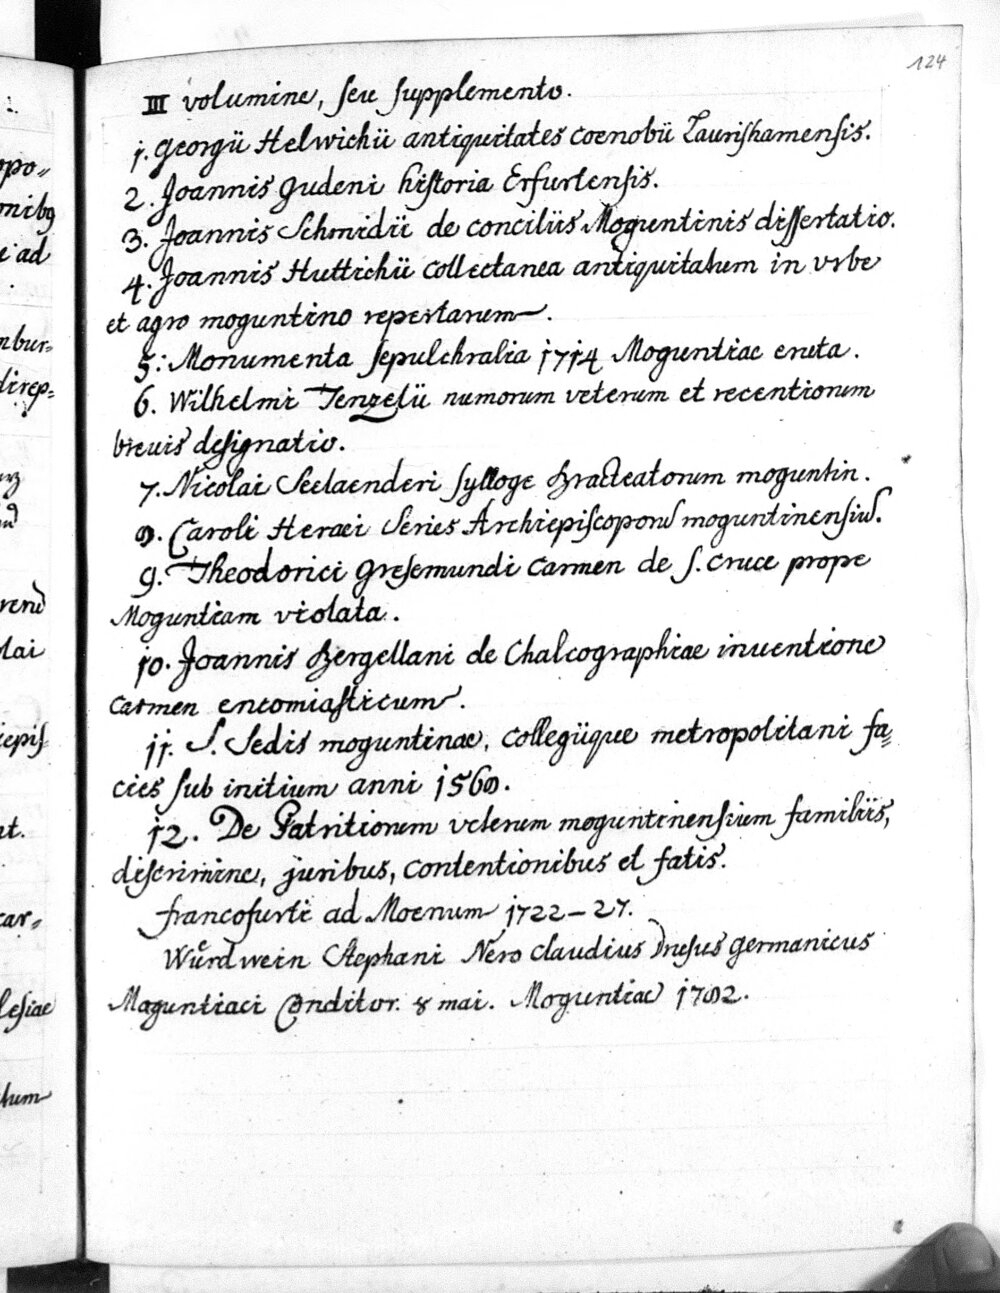 124
III volumine, seu supplemento.
1. Georgii Helwichii antiquitates coenobii Laurishamensis.
2. Joannis Gudeni historia Erfurtensis.
3. Joannis Schmidii de conciliis Moguntinis dissertatio.
4. Joannis Huttichii collectanea antiquitatum in vrbe
et agro moguntino repertarum.
5. Monumenta sepulchralia 1714 Moguntiae eruta.
6. Wilhelmi Tenzelii numorum veterum et recentiorum
breuis designatio.
7. Nicolai Seelaenderi sylloge Bracteatorum moguntin.
8. Caroli Heraei Series Archiepiscoporū moguntinensiū.
9. Theodorici Gresemundi Carmen de S. Cruce prope
Moguntiam violata.
10. Joannis Bergellani de Chalcographiae inuentione
Carmen encomiasticum.
11. S. Sedis moguntinae, collegiique metropolitani fa=
cies sub initium anni 1568.
12. De Patritiorum veterum moguntinensium familiis,
discrimine, juribus, contentionibus et fatis.
francofurti ad Moenum 1722-27.
Würdwein Stephani Nero Claudius Drusus Germanicus
Maguntiaci Conditor. 8 mai. Moguntiae 1782.
opo=
onibg
e ad
mbur=
direp=
renū
lai
iepis=
nt.
car=
lesiae
tum